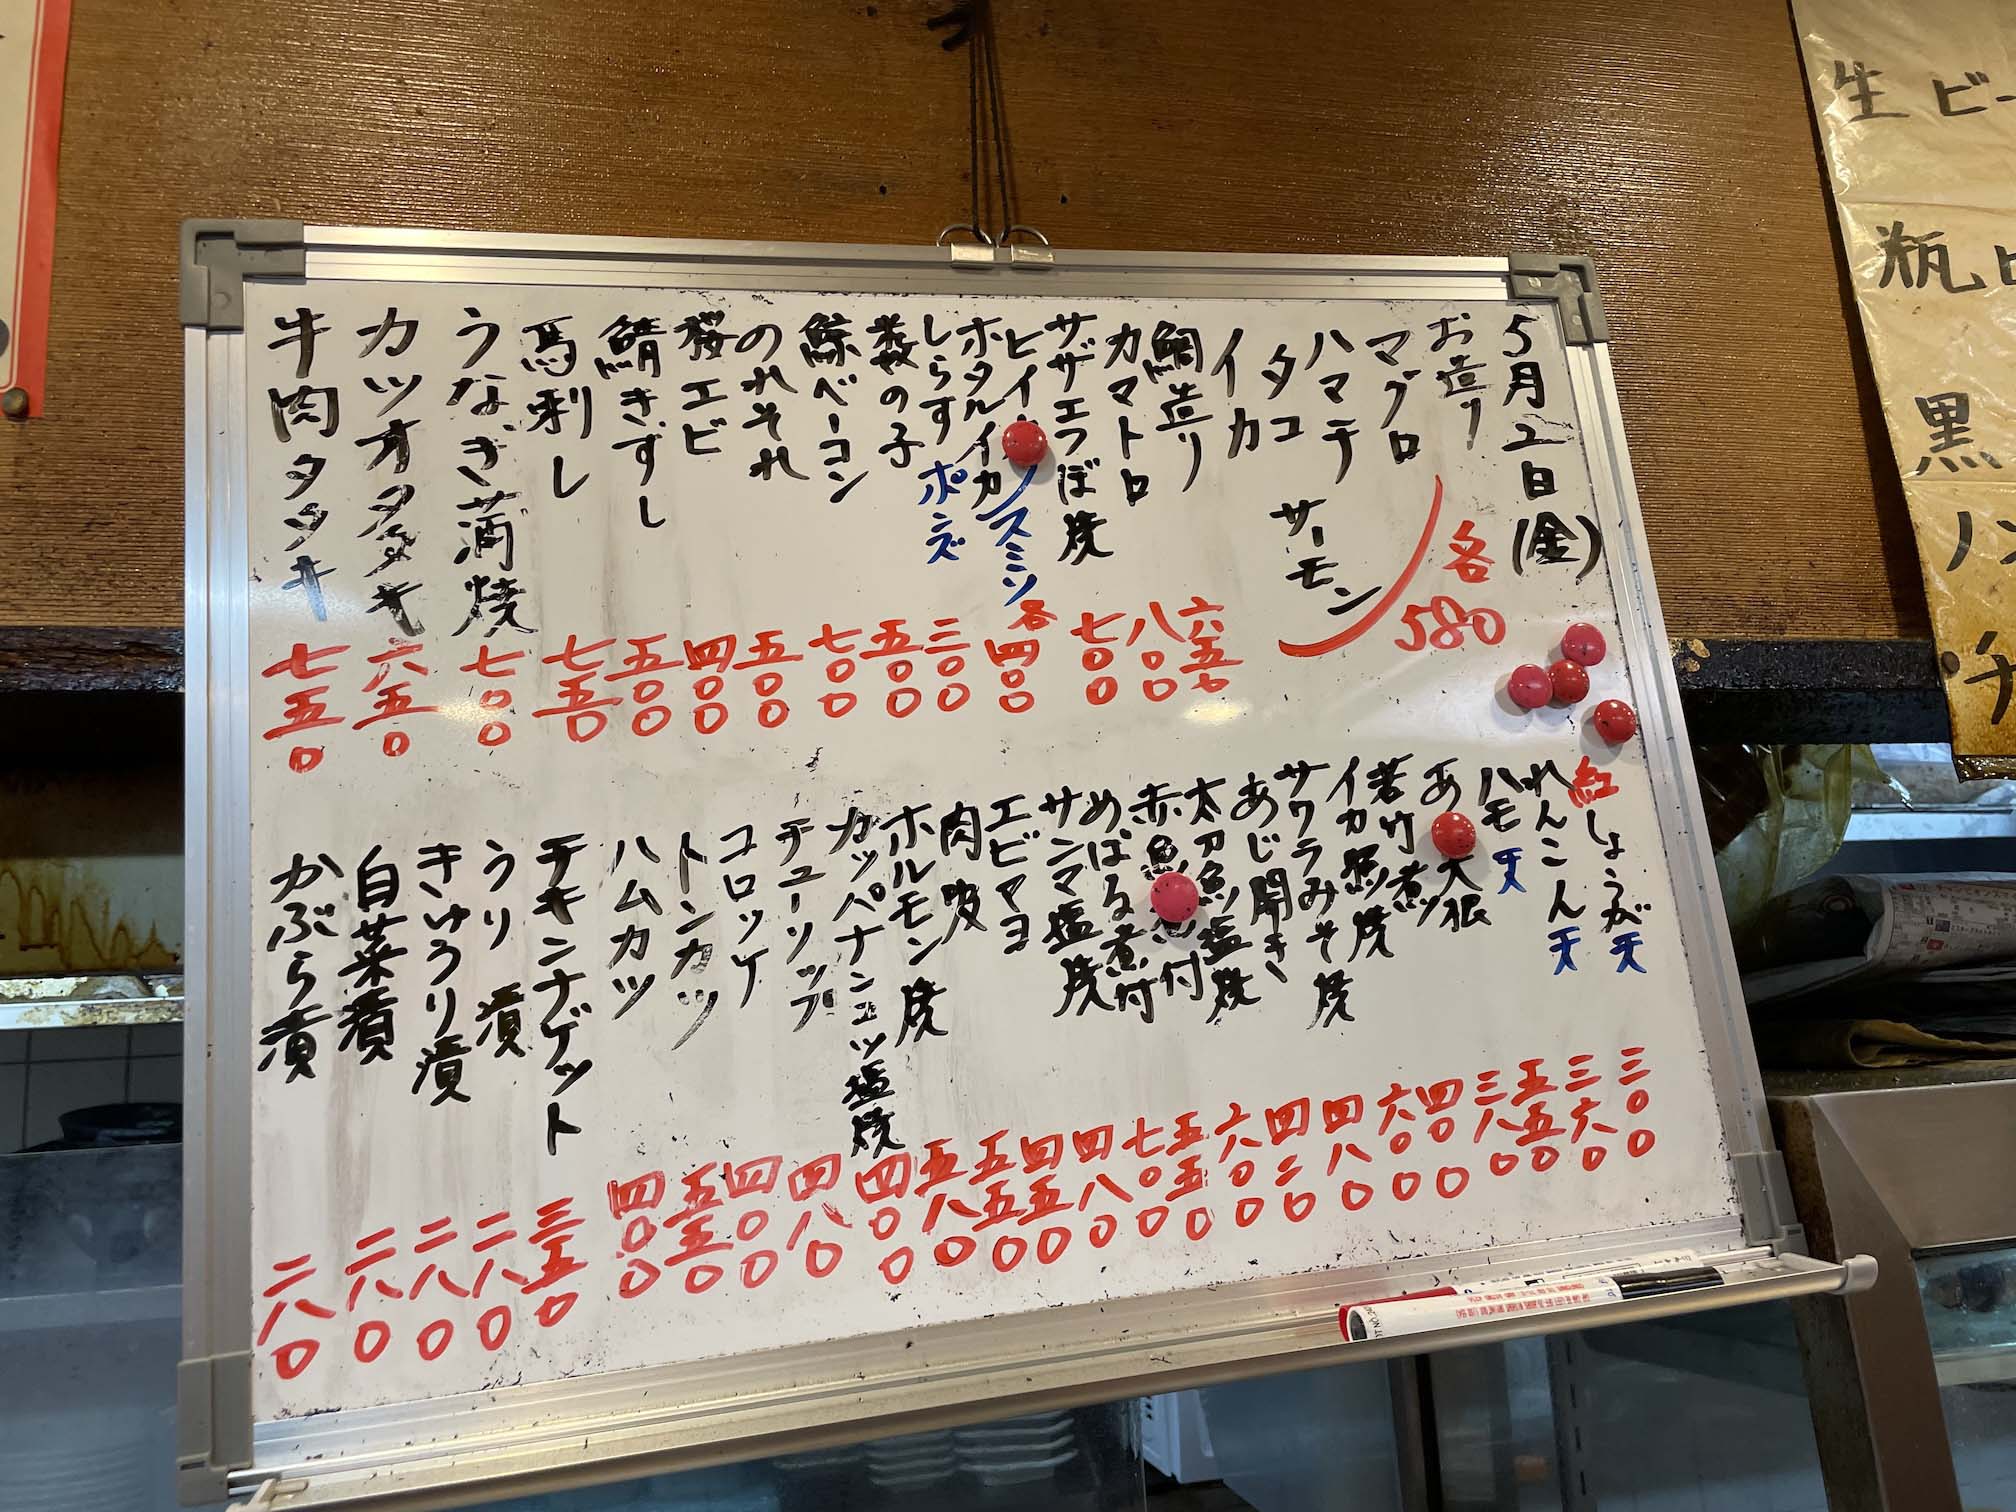 5月2日(金)
お造り
マグロ
ハマチ
タコ
サーモン
イカ
各
580
鯛造り 六五〇
カマトロ 八〇〇
サザエつぼ焼 七〇〇
ヒイ
ホタルイカ スミソ 各四〇〇
しらす ポンズ 三〇〇
数の子 五〇〇
鯨ベーコン 七〇〇
のれそれ 五〇〇
桜エビ 四〇〇
鯖きずし 五〇〇
馬刺し 七五〇
うなぎ蒲焼 七〇〇
カツオタタキ 六五〇
牛肉タタキ 七五〇
紅しょうが天 三〇〇
れんこん天 三六〇
ハモ天 五五〇
あ 大根 三八〇
若竹煮 四〇〇
イカ照焼 六〇〇
サワラみそ焼 四八〇
あじ開き 四二〇
太刀魚塩焼 六八〇
赤魚 付 五五〇
めばる煮付 七〇〇
サンマ塩焼 四八〇
エビマヨ 四五〇
肉吸 五五〇
ホルモン焼 五八〇
カッパナンコツ塩焼 四〇〇
チューリップ 四八〇
コロッケ 四〇〇
トンカツ 五五〇
ハムカツ 四〇〇
チキンナゲット 三五〇
うり漬 二八〇
きゅうり漬 二八〇
白菜漬 二八〇
かぶら漬 二八〇
生ビー
瓶ビ
黒